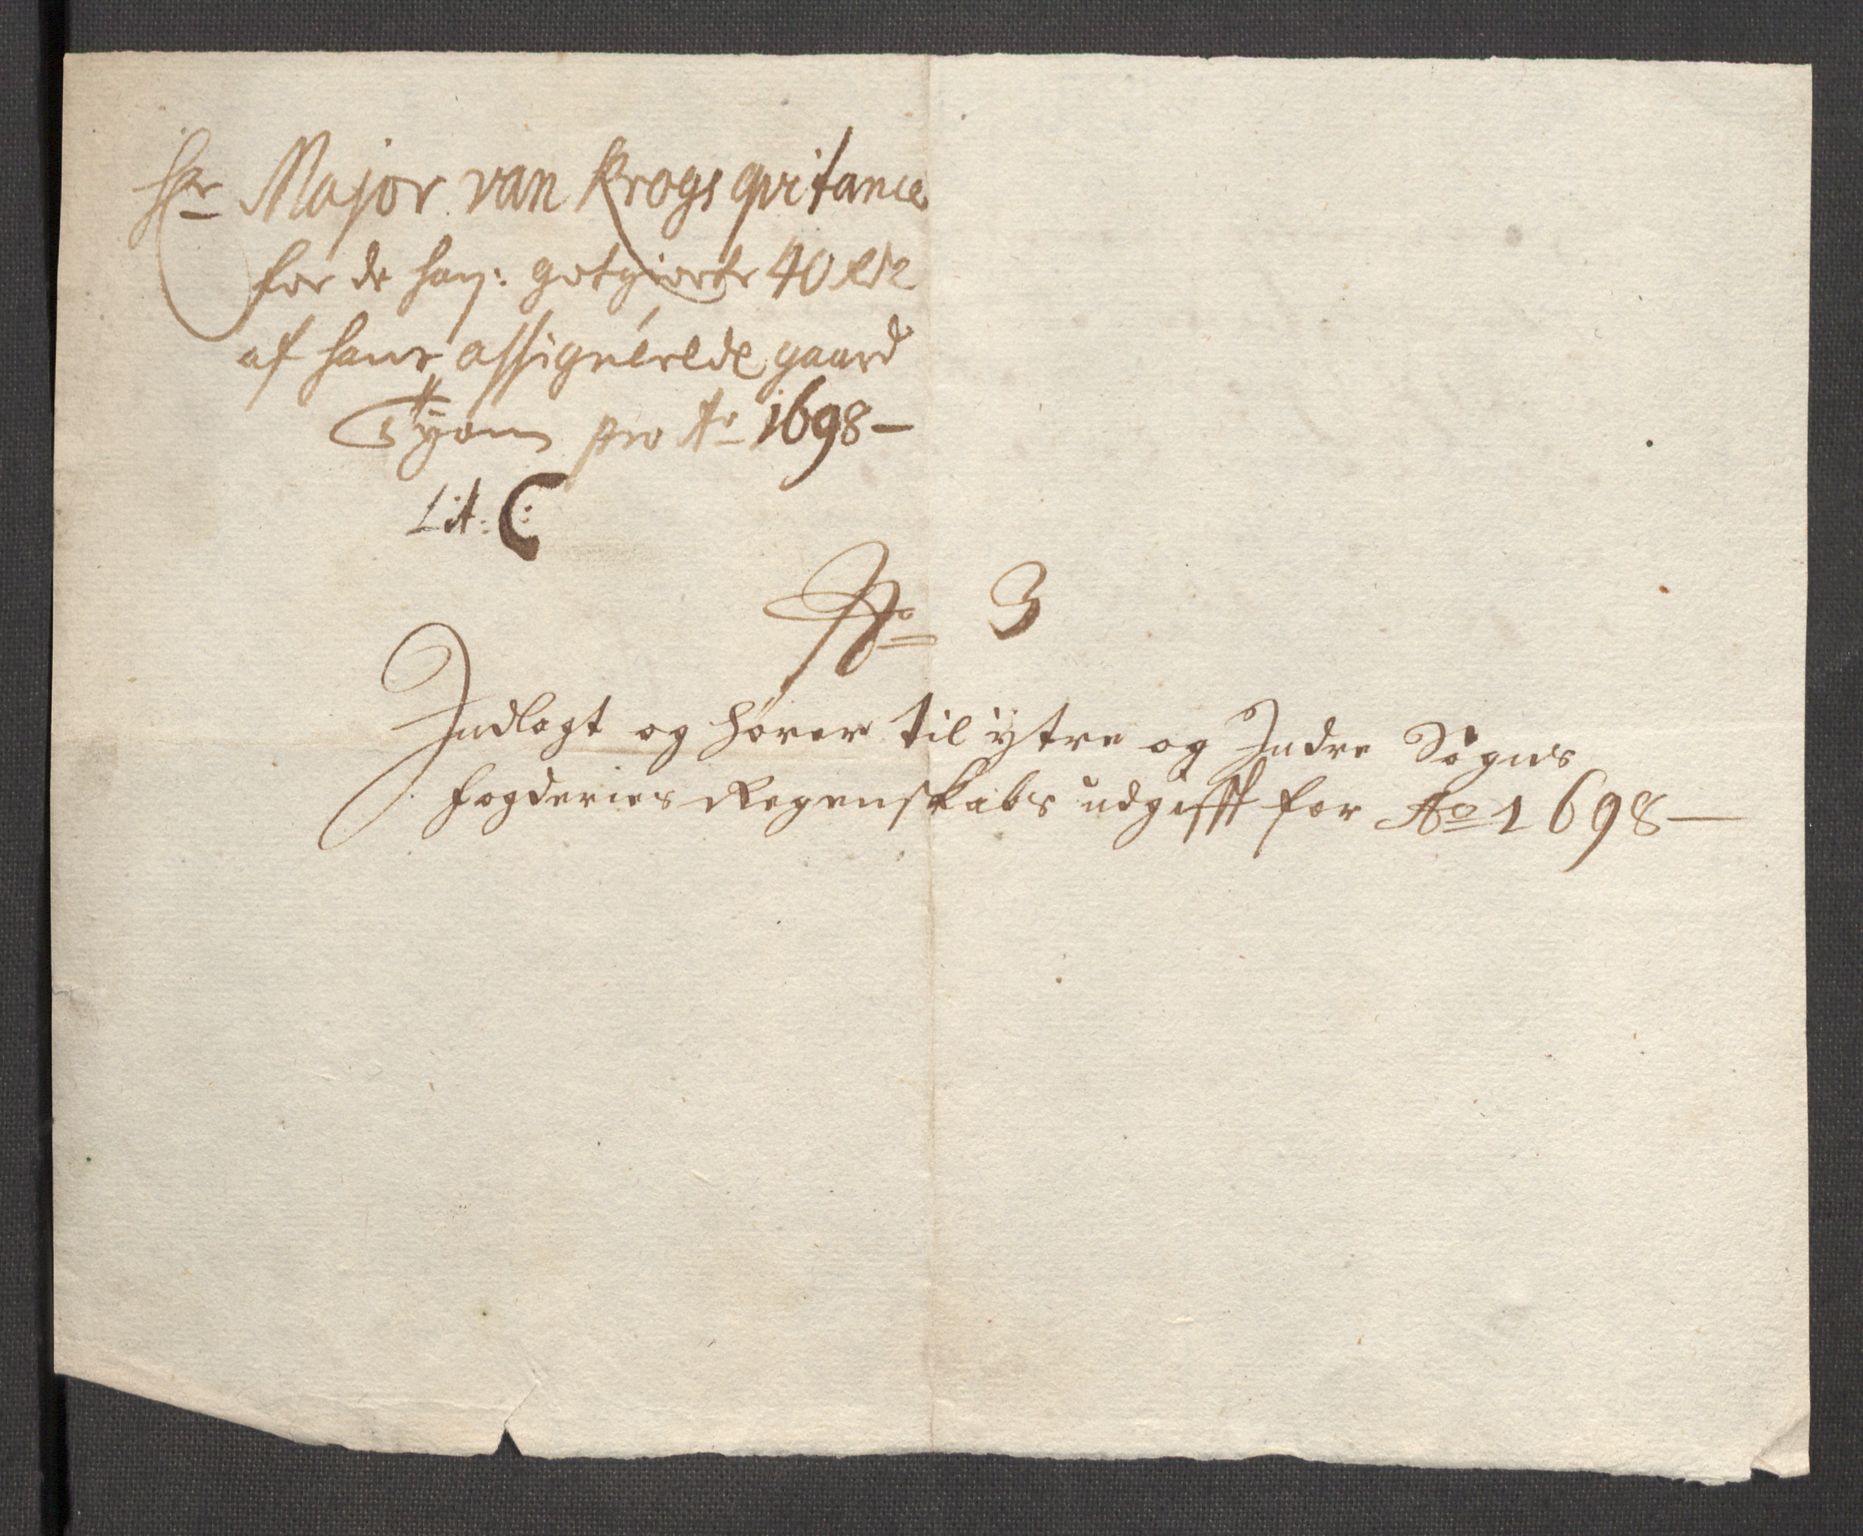 Hr Major van Krogs qvitance
for de ham: gotgiorte 40 Rdr
af hans assignerede gaard
pro Ao 1698 —
Lit: C:
No 3
Indlagt og hører til ÿtre og Indre Sogns
fogderies Regenskabs udgifft for Ao 1698 —